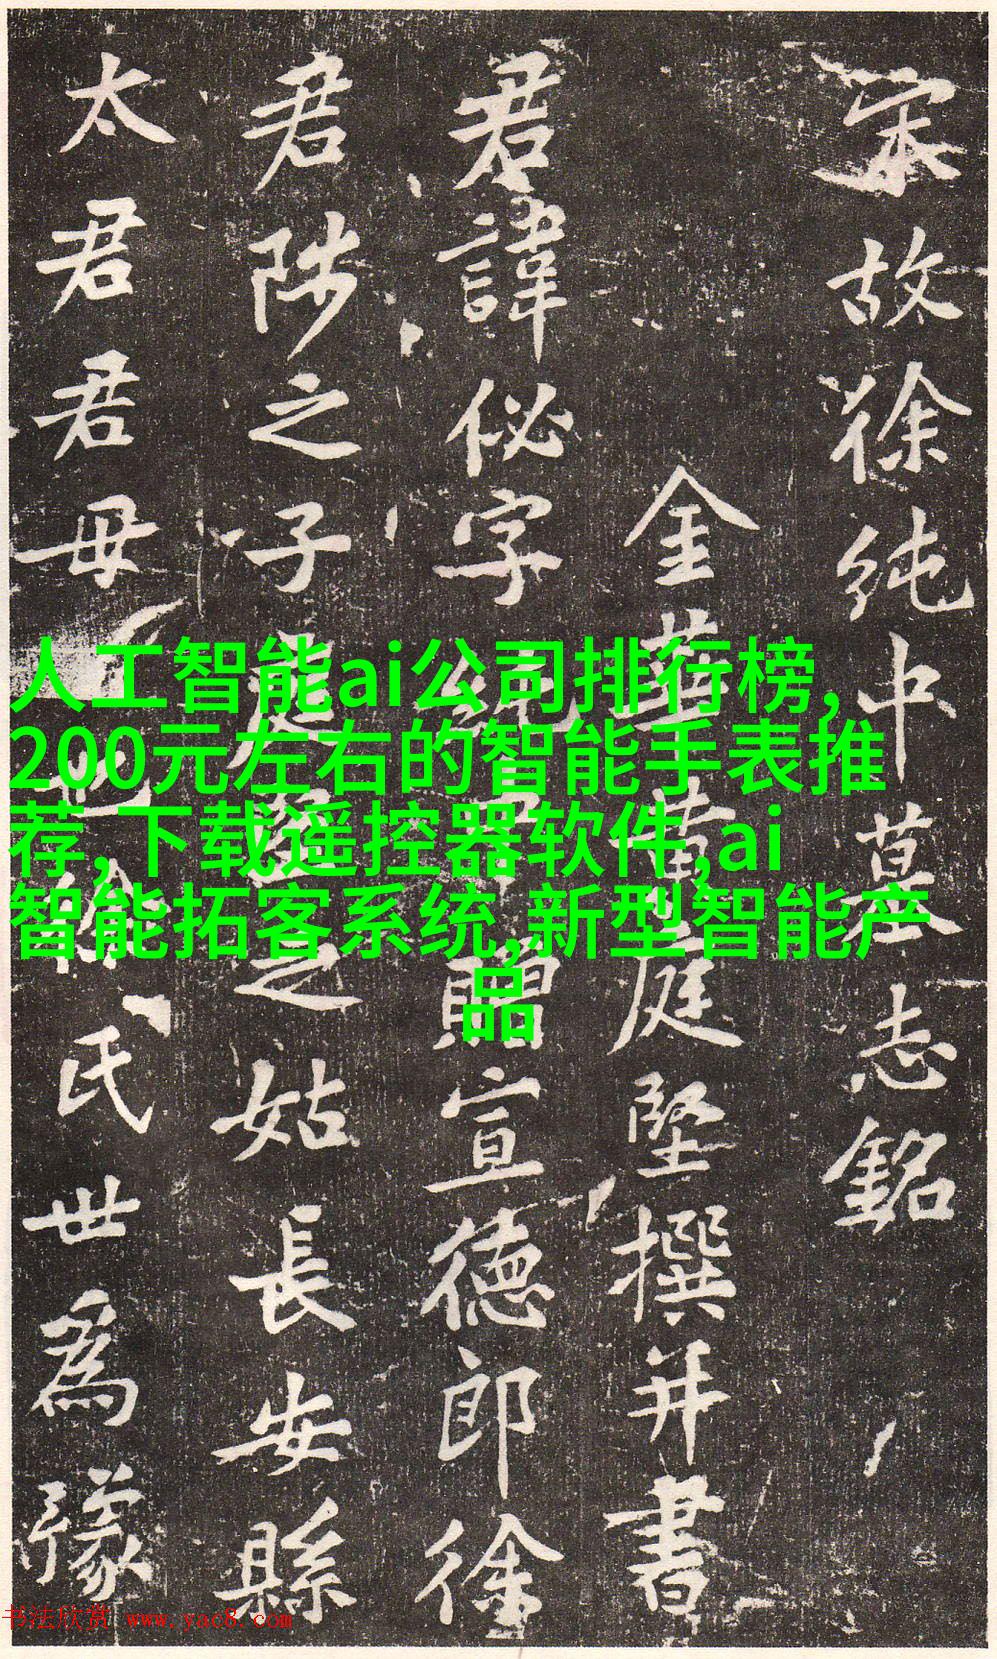 宋故徐纯中墓志銘
金華黄庭堅撰并書
君諱佖字贈宣德郎徐
君陟之子庭之姑長安縣
太君君毋氏世爲豫
人工智能ai公司排行榜,
200元左右的智能手表推
荐,下载遥控器软件,ai
智能拓客系统,新型智能产
品
书法欣赏 www.yac8.com